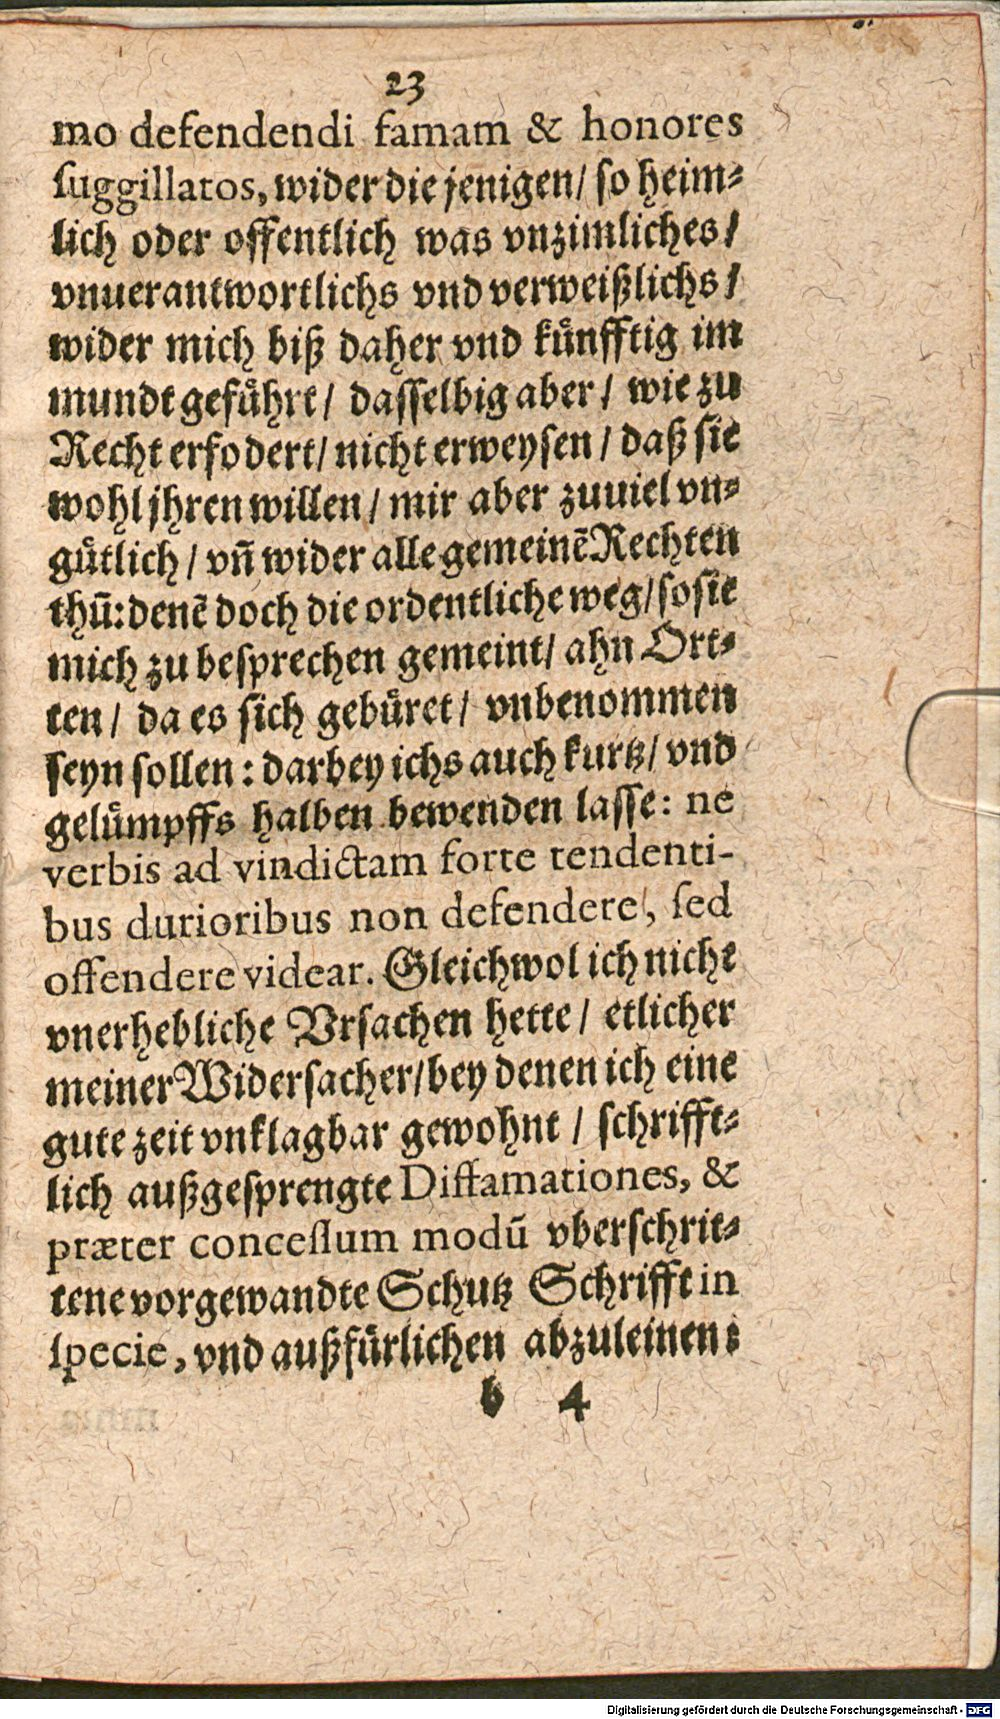 23
mo defendendi famam & honores
ſuggillatos, wider die jenigen/ ſo heim⸗
lich oder offentlich was vnzimliches/
vnuerantwortlichs vnd verweißlichs/
wider mich biß daher vnd kuͤnfftig im
mundt gefuͤhrt/ daſſelbig aber/ wie zu
Recht erfodert/ nicht erweyſen/ daß ſie
wohl jhren willen/ mir aber zuuiel vn⸗
guͤtlich/ vñ wider alle gemeinẽ Rechten
thũ: denẽ doch die ordentliche weg/ ſo ſie
mich zu beſprechen gemeint/ ahn Ort⸗
ten/ da es ſich gebuͤret/ vnbenommen
ſeyn ſollen: darbey ichs auch kurtz/ vnd
geluͤmpffs halben bewenden laſſe: ne
verbis ad vindictam forte tendenti-
bus durioribus non defendere, ſed
offendere videar. Gleichwol ich nicht
vnerhebliche Vrſachen hette/ etlicher
meiner Widerſacher/ bey denen ich eine
gute zeit vnklagbar gewohnt/ ſchrifft⸗
lich außgeſprengte Diffamationes, &
præter conceſſum modũ vberſchrit⸗
tene vorgewandte Schutz Schrifft in
ſpecie, vnd außfuͤrlichen abzuleinen:
b 4
Digitalisierung gefördert durch die Deutsche Forschungsgemeinschaft - DFG